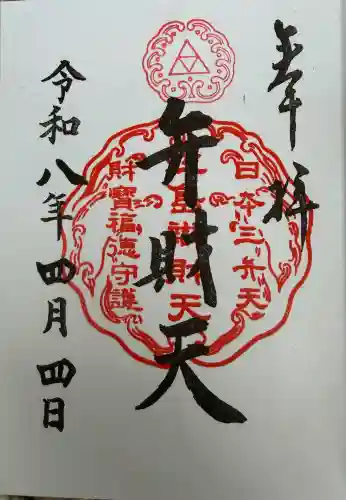 奉拝
日本三弁天
弁財天
財寶福徳守護
令和八年四月四日